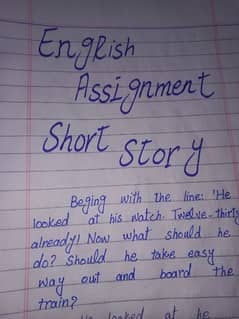 English
Assignment
Short Story
Beging with the line: 'He
looked at his watch. Twelve-thirty
already! Now what should he
do? Should he take easy
way out and board the
train?
He looked at he